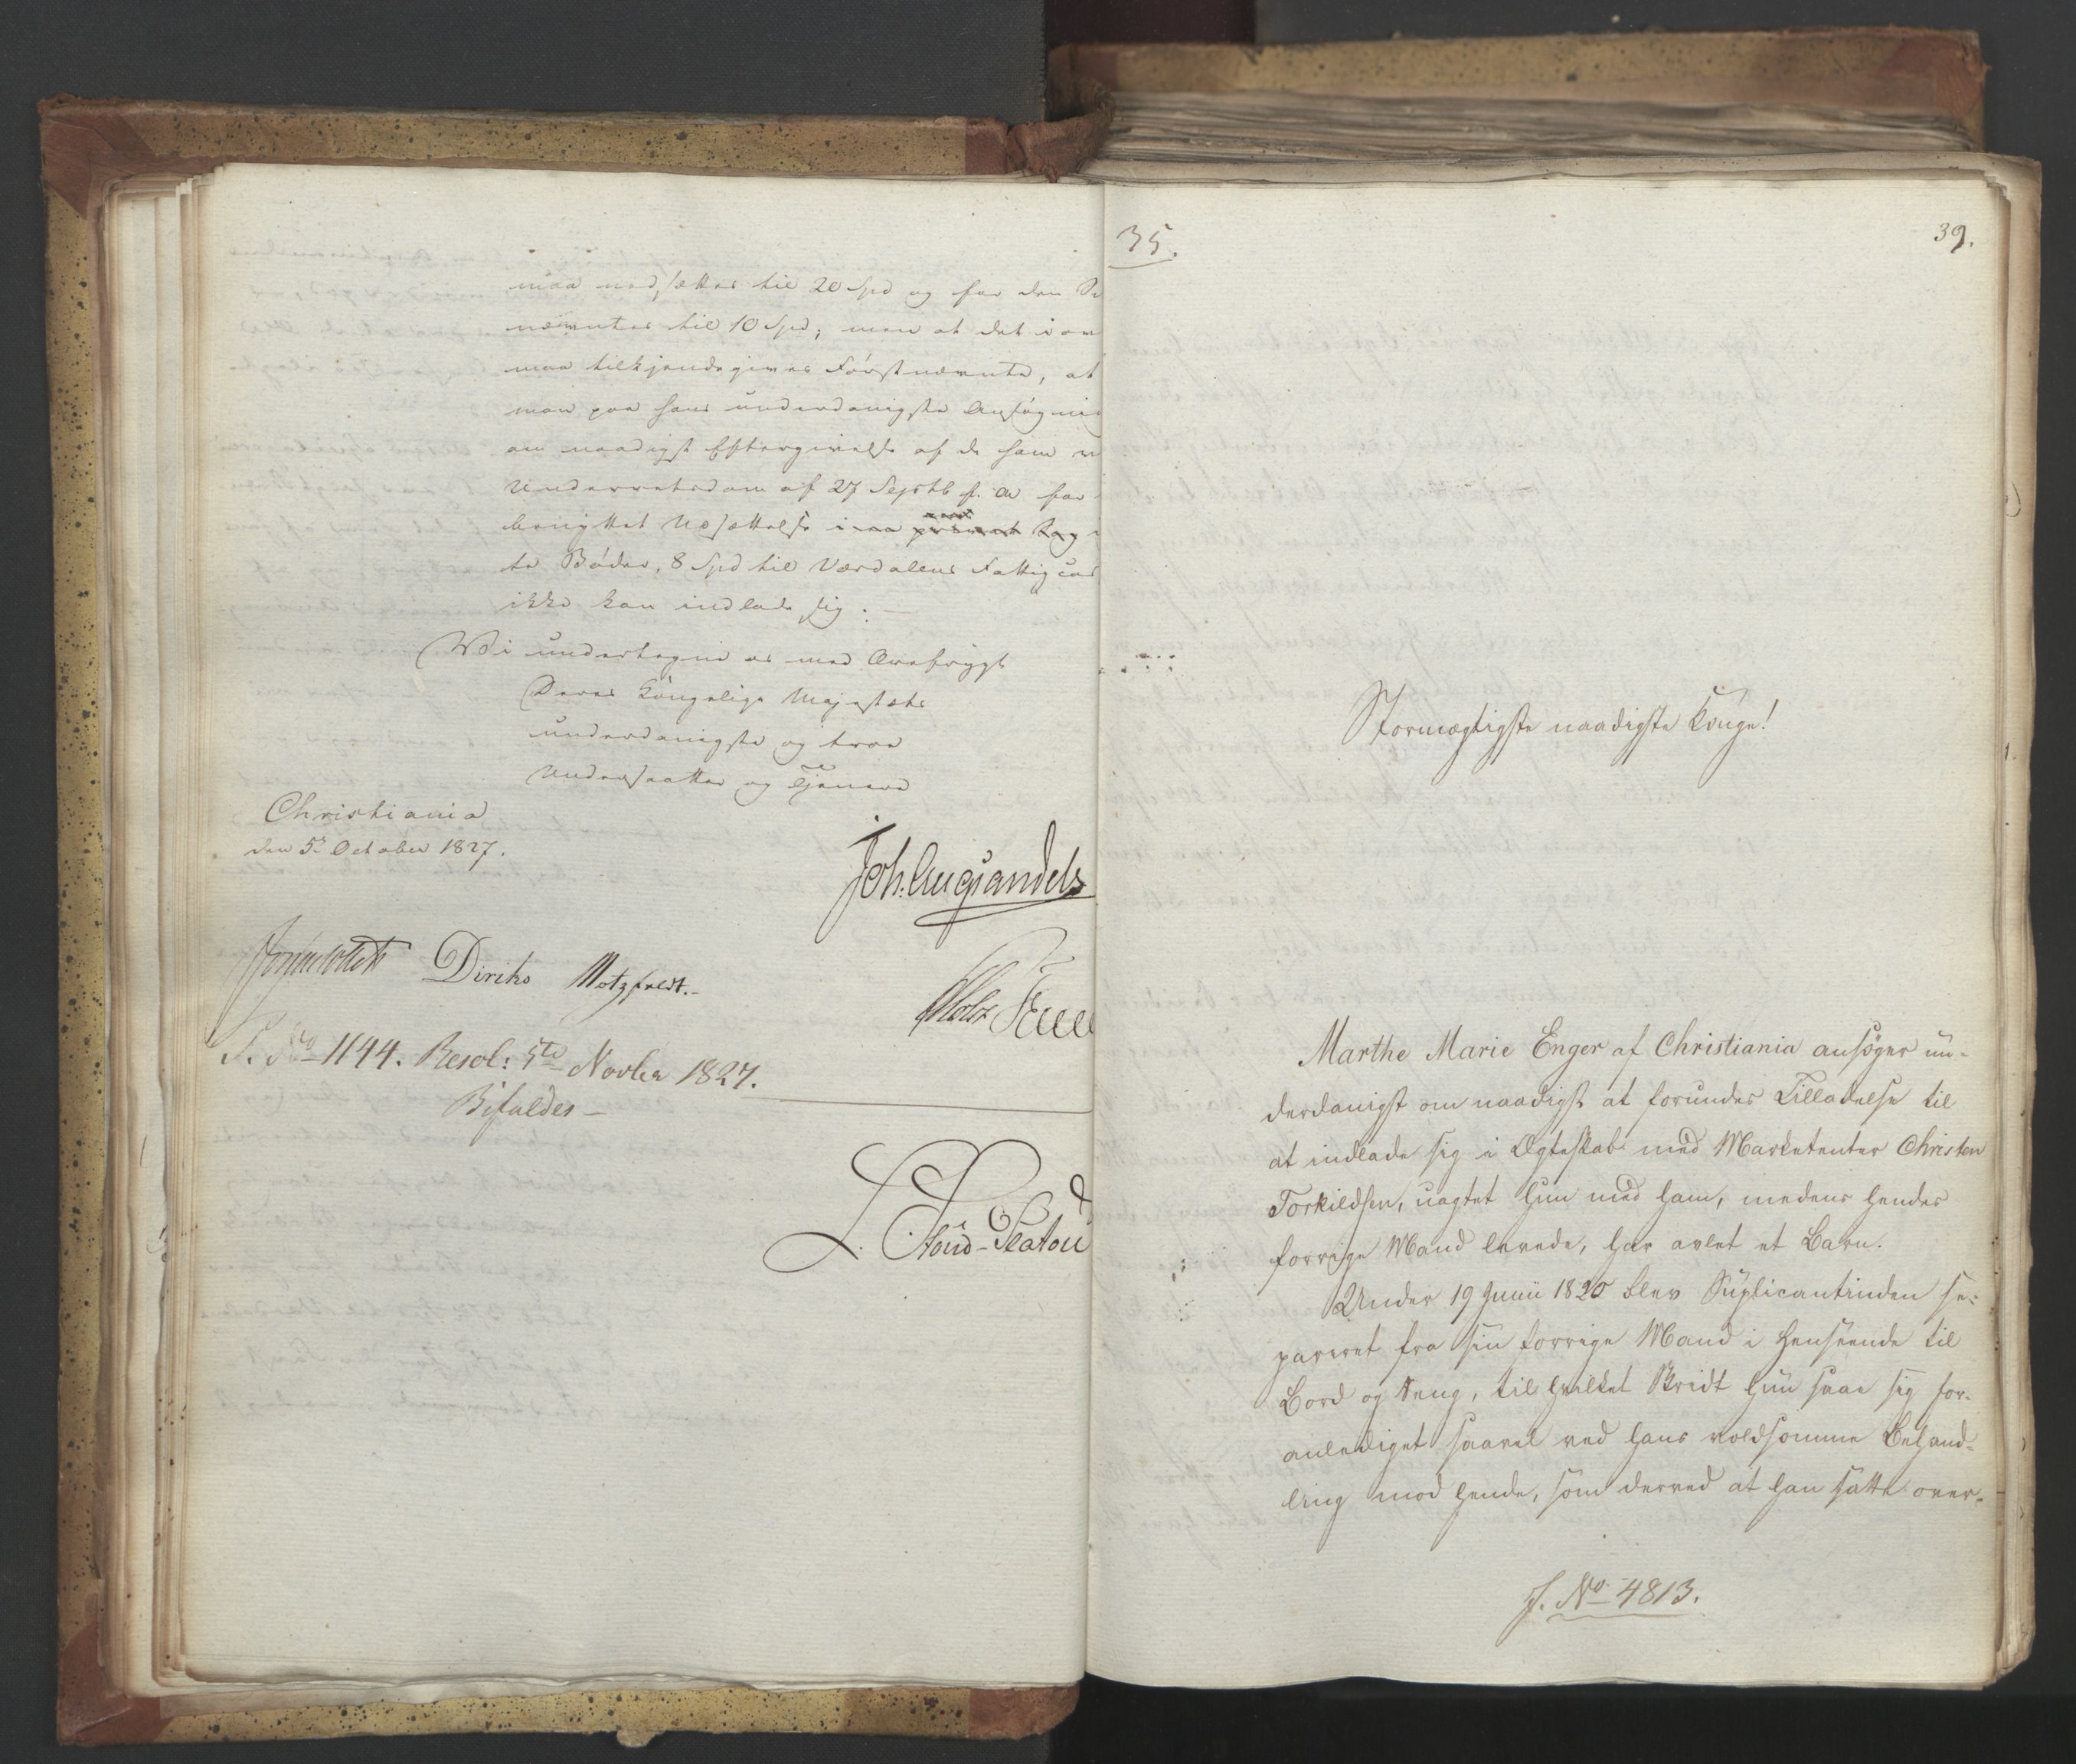 maa nedsættes til 20 Spd og for den Si
nævntes til 10 Spd; men at det i øv
maa tilkjendegives Førstnævnte, at
man paa hans underdanigste Ansøgning
om naadigst Eftergivelse af de ham v
Underretsdom af 27 Septb f. A for
benyttet Udsættelse i
te Bøder, 8 Spd til Værdalens Fattigcas
ikke kan indlade sig. —
Vi undertegne os med Ærefrygt
Deres Kongelige Majestæts
underdanigste og troe
Undersaatter og Tjenere
Christiania
den 5te October 1827.
Joh. Aug Sandels
Diriks Motzfeldt.
Holst
S. No 1144. Resol: 5te Novbr 1827.
Bifaldes —
35.
39.
Stormægtigste naadigste Konge!
Marthe Marie Enger af Christiania ansøger un-
derdanigst om naadigst at forundes Tilladelse til
at indlade sig i Ægteskab med Marketenter Christen
Torkildsen, uagtet hun med ham, medens hendes
forrige Mand levede, har avlet et Barn.
Under 19 Junii 1820 blev Suplicantinden se-
pareret fra sin forrige Mand i Henseende til
Bord og Seng, til hvilket Skridt hun saae sig for-
anlediget saavel ved hans voldsomme Behand-
ling mod hende, som derved at han satte over-
J. No 4813.